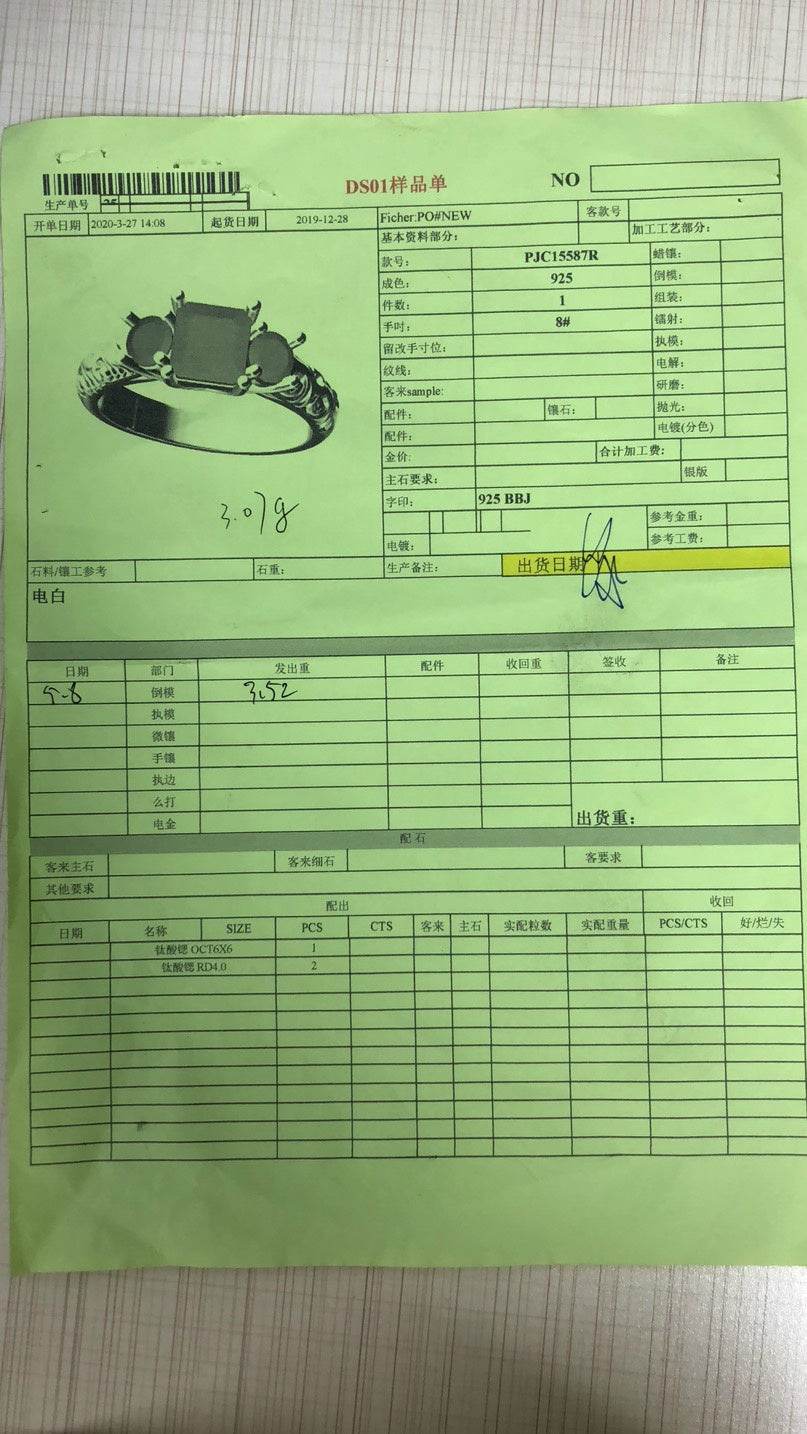 DS01样品单
NO
生产单号
开单日期 2020-3-27 14:08 起货日期 2019-12-28 Ficher:PO#NEW 客款号
基本资料部分: 加工工艺部分:
款号: PJC15587R 蜡镶:
成色: 925 倒模:
件数: 1 组装:
手吋: 8# 镭射:
留改手寸位: 执模:
纹线: 电解:
客来sample: 研磨:
配件: 镶石: 抛光:
配件: 电镀(分色)
金价: 合计加工费:
主石要求: 银版
字印: 925 BBJ
参考金重:
电镀: 参考工费:
3.07g
石料/镶工参考 石重: 生产备注: 出货日期
电白
日期 部门 发出重 配件 收回重 签收 备注
5-8 倒模 3.52
执模
微镶
手镶
执边
么打
电金 出货重:
配石
客来主石 客来细石 客要求
其他要求
配出 收回
日期 名称 SIZE PCS CTS 客来 主石 实配粒数 实配重量 PCS/CTS 好/烂/失
钛酸锶 OCT6X6 1
钛酸锶 RD4.0 2